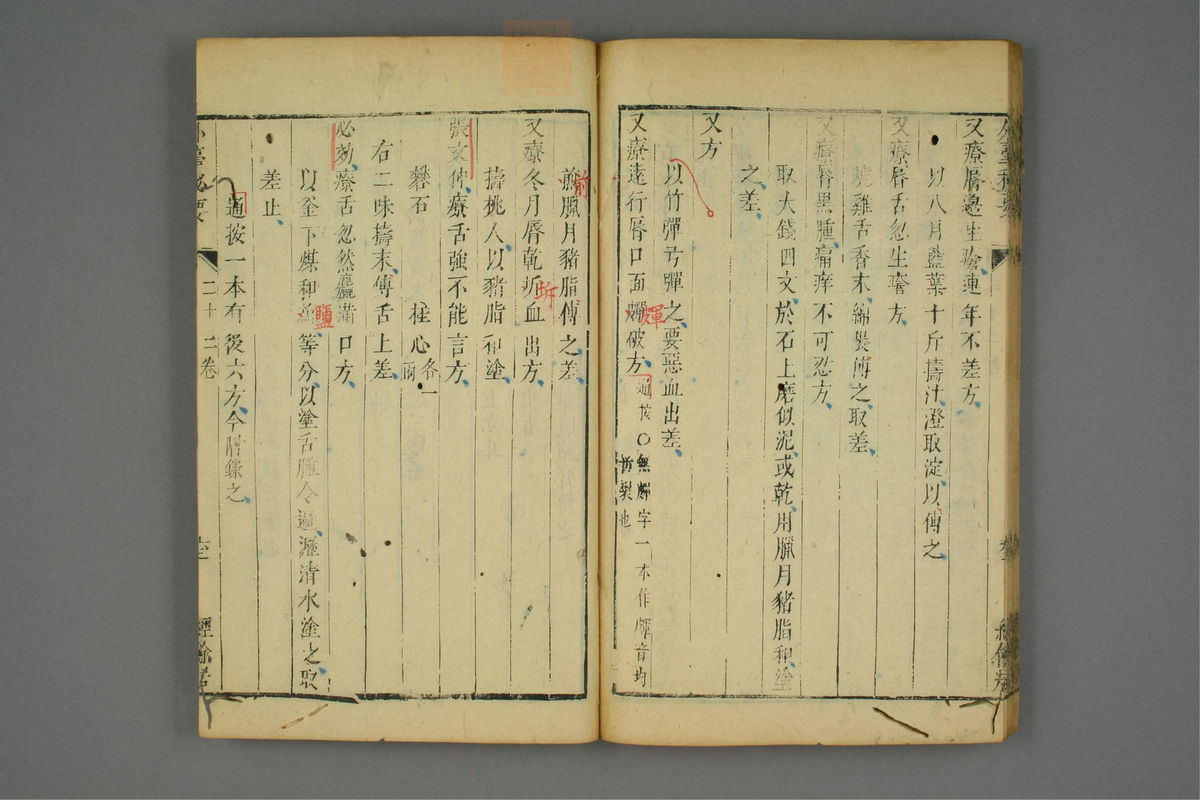 又療脣邊生瘡連年不差方
以八月藍葉十斤擣汁澄取淀以傅之
又療脣舌忽生瘡方
燒雞舌香末綿裹傅之取差
又療脣黑腫痛痒不可忍方
取大錢四文於石上磨似泥或乾用臘月豬脂和塗
之差
又方
以竹彈弓彈之要惡血出差
又療遠行脣口面皸破方 通按○無皸字一本作皹音均
拆裂也
煎臘月豬脂傅之差
又療冬月脣乾坼血出方
擣桃人以豬脂和塗
張文仲療舌強不能言方
礬石 桂心各一兩
右二味擣末傅舌上差
必効療舌忽然麤滿口方
以釜下煤和鹽等分以塗舌腫令遍瀝清水塗之取
差止
通按一本有後六方今附錄之
外臺秘要 二十二卷 經餘居